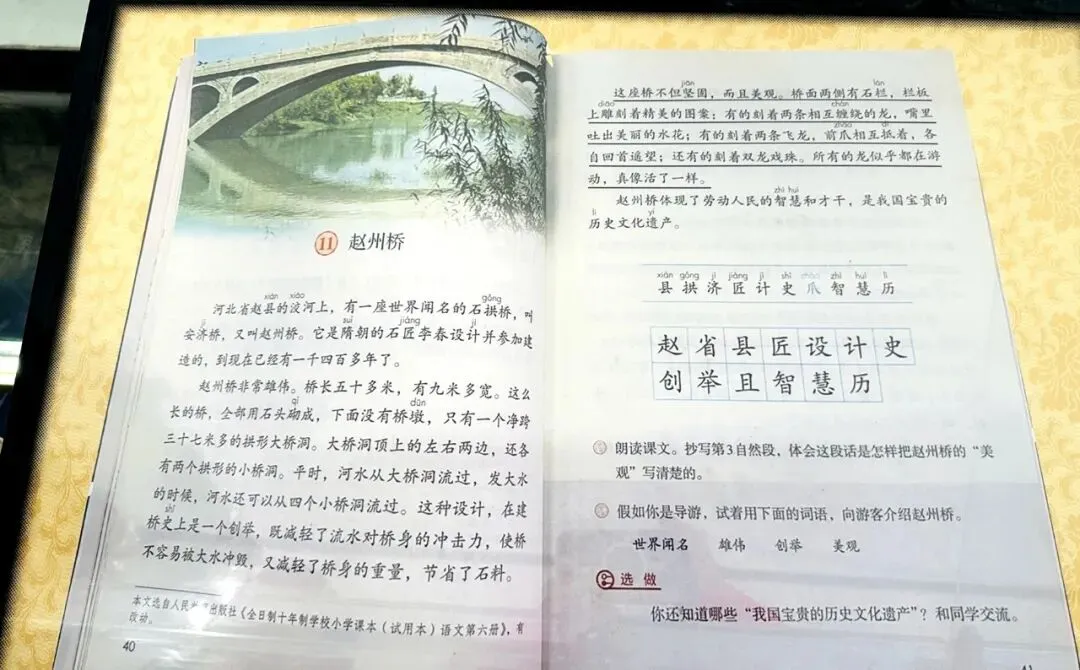 11 赵州桥
xián xiáo gǒng
河北省赵县的洨河上，有一座世界闻名的石拱桥，叫
jì suí jiàng jì
安济桥，又叫赵州桥。它是隋朝的石匠李春设计并参加建
造的，到现在已经有一千四百多年了。
赵州桥非常雄伟。桥长五十多米，有九米多宽。这么
qì dūn
长的桥，全部用石头砌成，下面没有桥墩，只有一个净跨
三十七米多的拱形大桥洞。大桥洞顶上的左右两边，还各
有两个拱形的小桥洞。平时，河水从大桥洞流过，发大水
的时候，河水还可以从四个小桥洞流过。这种设计，在建
shǐ
桥史上是一个创举，既减轻了流水对桥身的冲击力，使桥
不容易被大水冲毁，又减轻了桥身的重量，节省了石料。
本文选自人民 出版社《全日制十年制学校小学课本（试用本）语文第六册》，有
改动。
40
jiān lán
这座桥不但坚固，而且美观。桥面两侧有石栏，栏板
diāo chán
上雕刻着精美的图案：有的刻着两条相互缠绕的龙，嘴里
zhǎo dǐ
吐出美丽的水花；有的刻着两条飞龙，前爪相互抵着，各
自回首遥望；还有的刻着双龙戏珠。所有的龙似乎都在游
动，真像活了一样。
zhì huì
赵州桥体现了劳动人民的智慧和才干，是我国宝贵的
lì yí
历史文化遗产。
xiàn gǒng jì jiàng jì shǐ zhǎo zhì huì lì
县 拱 济 匠 计 史 爪 智 慧 历
赵 省 县 匠 设 计 史
创 举 且 智 慧 历
朗读课文。抄写第3自然段，体会这段话是怎样把赵州桥的“美
观”写清楚的。
假如你是导游，试着用下面的词语，向游客介绍赵州桥。
世界闻名 雄伟 创举 美观
选做
你还知道哪些“我国宝贵的历史文化遗产”？和同学交流。